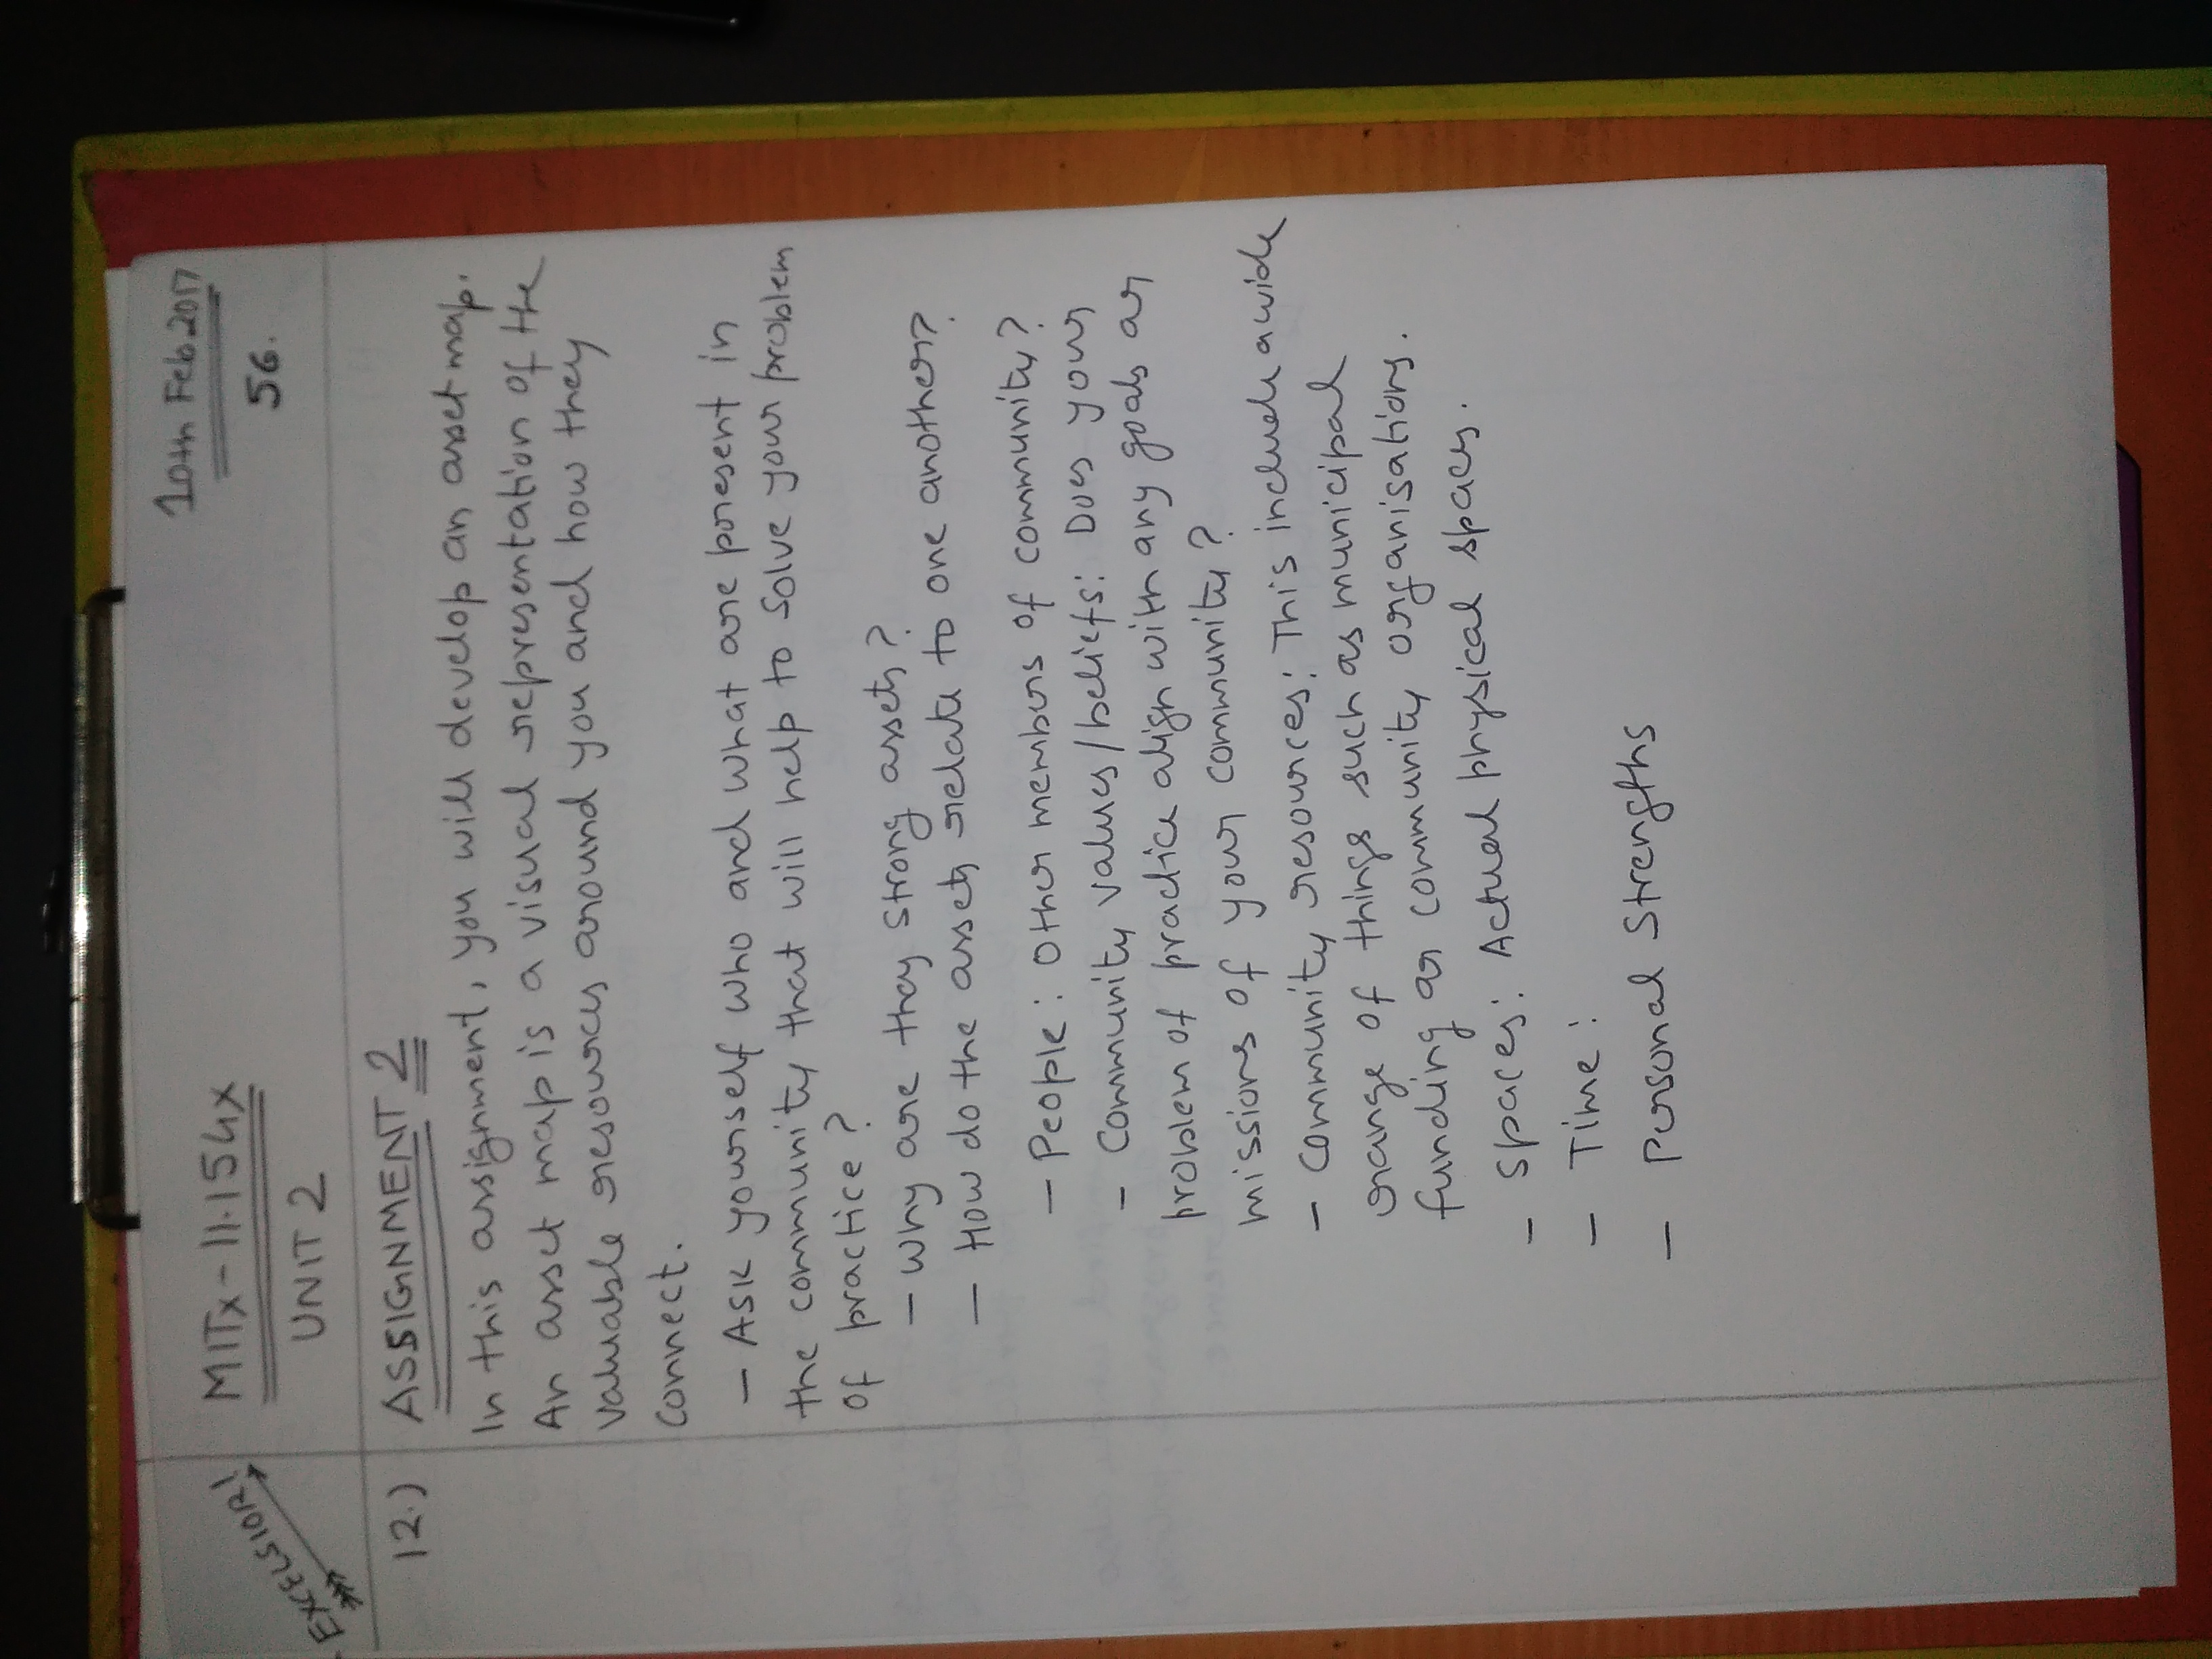 EXCELSIOR!
MITx-11.154x
UNIT 2
10th Feb 2017
56.
12.) ASSIGNMENT 2
In this assignment, you will develop an asset map.
An asset map is a visual representation of the
valuable resources around you and how they
connect.
- Ask yourself who and what are present in
the community that will help to solve your problem
of practice?
- Why are they strong assets?
- How do the assets relate to one another?
- People: Other members of community?
- Community values/beliefs: Does your
problem of practice align with any goals or
missions of your community?
- Community resources: This include a wide
range of things such as municipal
funding or community organisations.
- Spaces: Actual physical spaces.
- Time:
- Personal Strengths